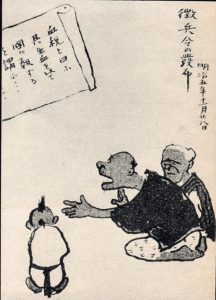 徴兵令の發布
明治五年十一月廿八日
血税と曰ふ
其生血を以て
國に報ずる
を謂ふ……